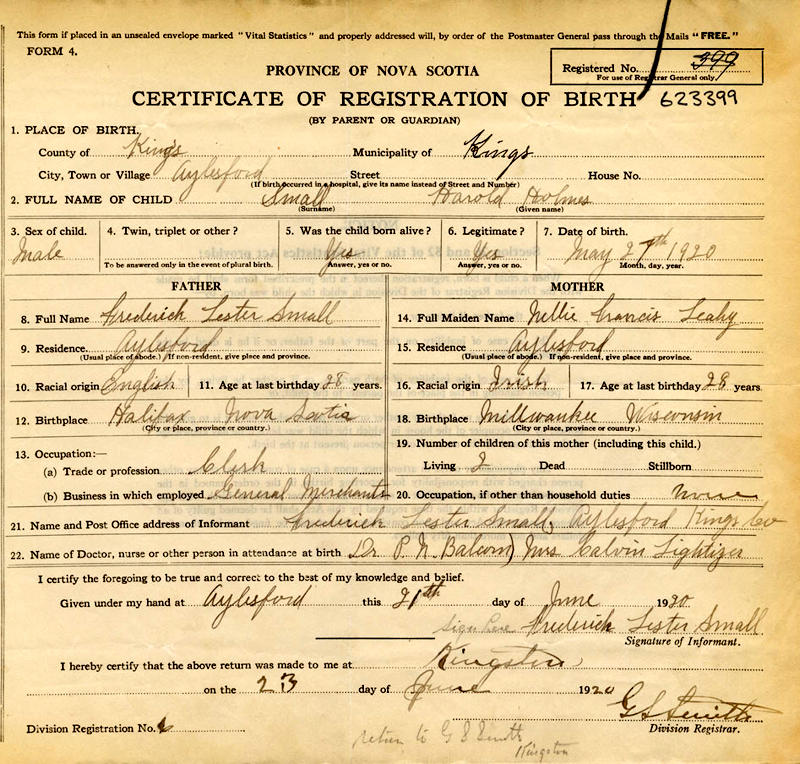 This form if placed in an unsealed envelope marked "Vital Statistics" and properly addressed will, by order of the Postmaster General pass through the Mails "FREE."
FORM 4.
Registered No. 399
For use of Registrar General only.
PROVINCE OF NOVA SCOTIA
CERTIFICATE OF REGISTRATION OF BIRTH 623399
(BY PARENT OR GUARDIAN)
1. PLACE OF BIRTH.
County of Kings Municipality of Kings
City, Town or Village Aylesford Street House No.
(If birth occurred in a hospital, give its name instead of Street and Number)
2. FULL NAME OF CHILD Small Harold Holmes
(Surname) (Given name)
3. Sex of child. 4. Twin, triplet or other? 5. Was the child born alive? 6. Legitimate? 7. Date of birth.
Male Yes Yes May 27th 1920
To be answered only in the event of plural birth. Answer, yes or no. Answer, yes or no. Month, day, year.
FATHER MOTHER
8. Full Name Frederick Lester Small 14. Full Maiden Name Nellie Francis Leahy
9. Residence. Aylesford 15. Residence Aylesford
(Usual place of abode.) If non-resident, give place and province. (Usual place of abode.) If non-resident, give place and province.
10. Racial origin English 11. Age at last birthday 28 years. 16. Racial origin Irish 17. Age at last birthday 28 years
12. Birthplace Halifax Nova Scotia 18. Birthplace Millwaukee Wisconsin
(City or place, province or country.) (City or place, province or country.)
13. Occupation:— 19. Number of children of this mother (including this child.)
(a) Trade or profession Clerk Living 2 Dead Stillborn
(b) Business in which employed General Merchants 20. Occupation, if other than household duties none
21. Name and Post Office address of Informant Frederick Lester Small, Aylesford Kings Co
22. Name of Doctor, nurse or other person in attendance at birth Dr P. N. Balcom) Mrs Calvin Lightizer
I certify the foregoing to be true and correct to the best of my knowledge and belief.
Given under my hand at Aylesford this 21th day of June 1920
Sign here Frederick Lester Small
Signature of Informant.
I hereby certify that the above return was made to me at Kingston
on the 23 day of June 1920
G S Smith
Division Registrar.
Division Registration No.
return to G S Smith
Kingston